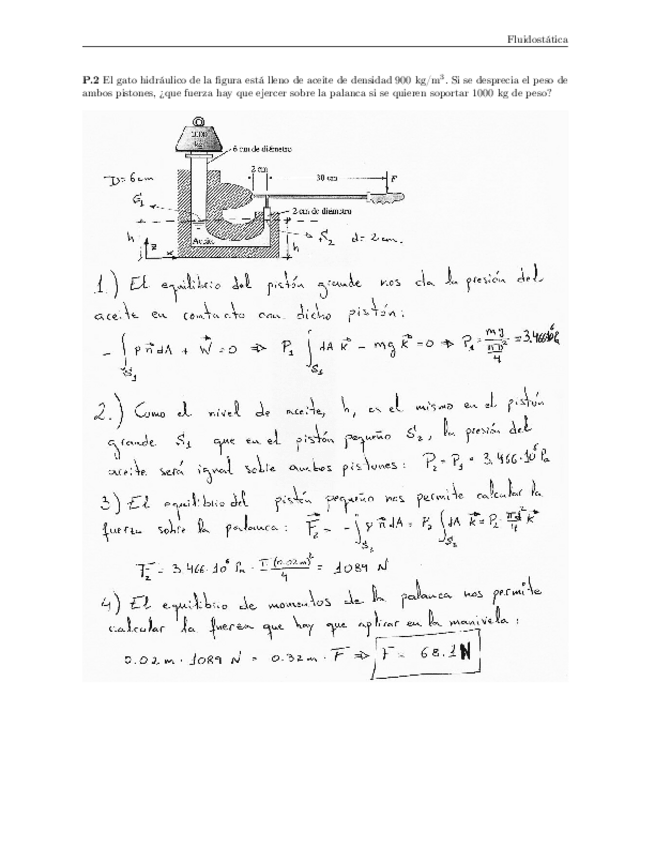 Fluidostática
P.2 El gato hidráulico de la figura está lleno de aceite de densidad 900 kg/m³. Si se desprecia el peso de
ambos pistones, ¿que fuerza hay que ejercer sobre la palanca si se quieren soportar 1000 kg de peso?
1000
6 cm de diámetro
2 cm
30 cm
F
D=6cm
S₁
2 cm de diámetro
S₂ d=2cm.
h
z
x
Aceite
h
1.) El equilibrio del pistón grande nos da la presión del
aceite en contacto con dicho pistón:
- ∫S₁ p n⃗ dA + W⃗ = 0 ⇒ P₁ ∫S₁ dA k⃗ - mg k⃗ = 0 ⇒ P₁ = mg / (πD²/4) = 3.466·10⁶ Pa
2.) Como el nivel de aceite, h, es el mismo en el pistón
grande S₁ que en el pistón pequeño S₂, la presión del
aceite será igual sobre ambos pistones: P₂ = P₁ = 3.466·10⁶ Pa
3) El equilibrio del pistón pequeño nos permite calcular la
fuerza sobre la palanca: F⃗₂ = - ∫S₂ p n⃗ dA = P₂ ∫S₂ dA k⃗ = P₂ · πd²/4 k⃗
F₂ = 3.466·10⁶ Pa · π(0.02m)²/4 = 1089 N
4) El equilibrio de momentos de la palanca nos permite
calcular la fuerza que hay que aplicar en la manivela:
0.02m · 1089 N = 0.32m · F ⇒ F = 68.1N